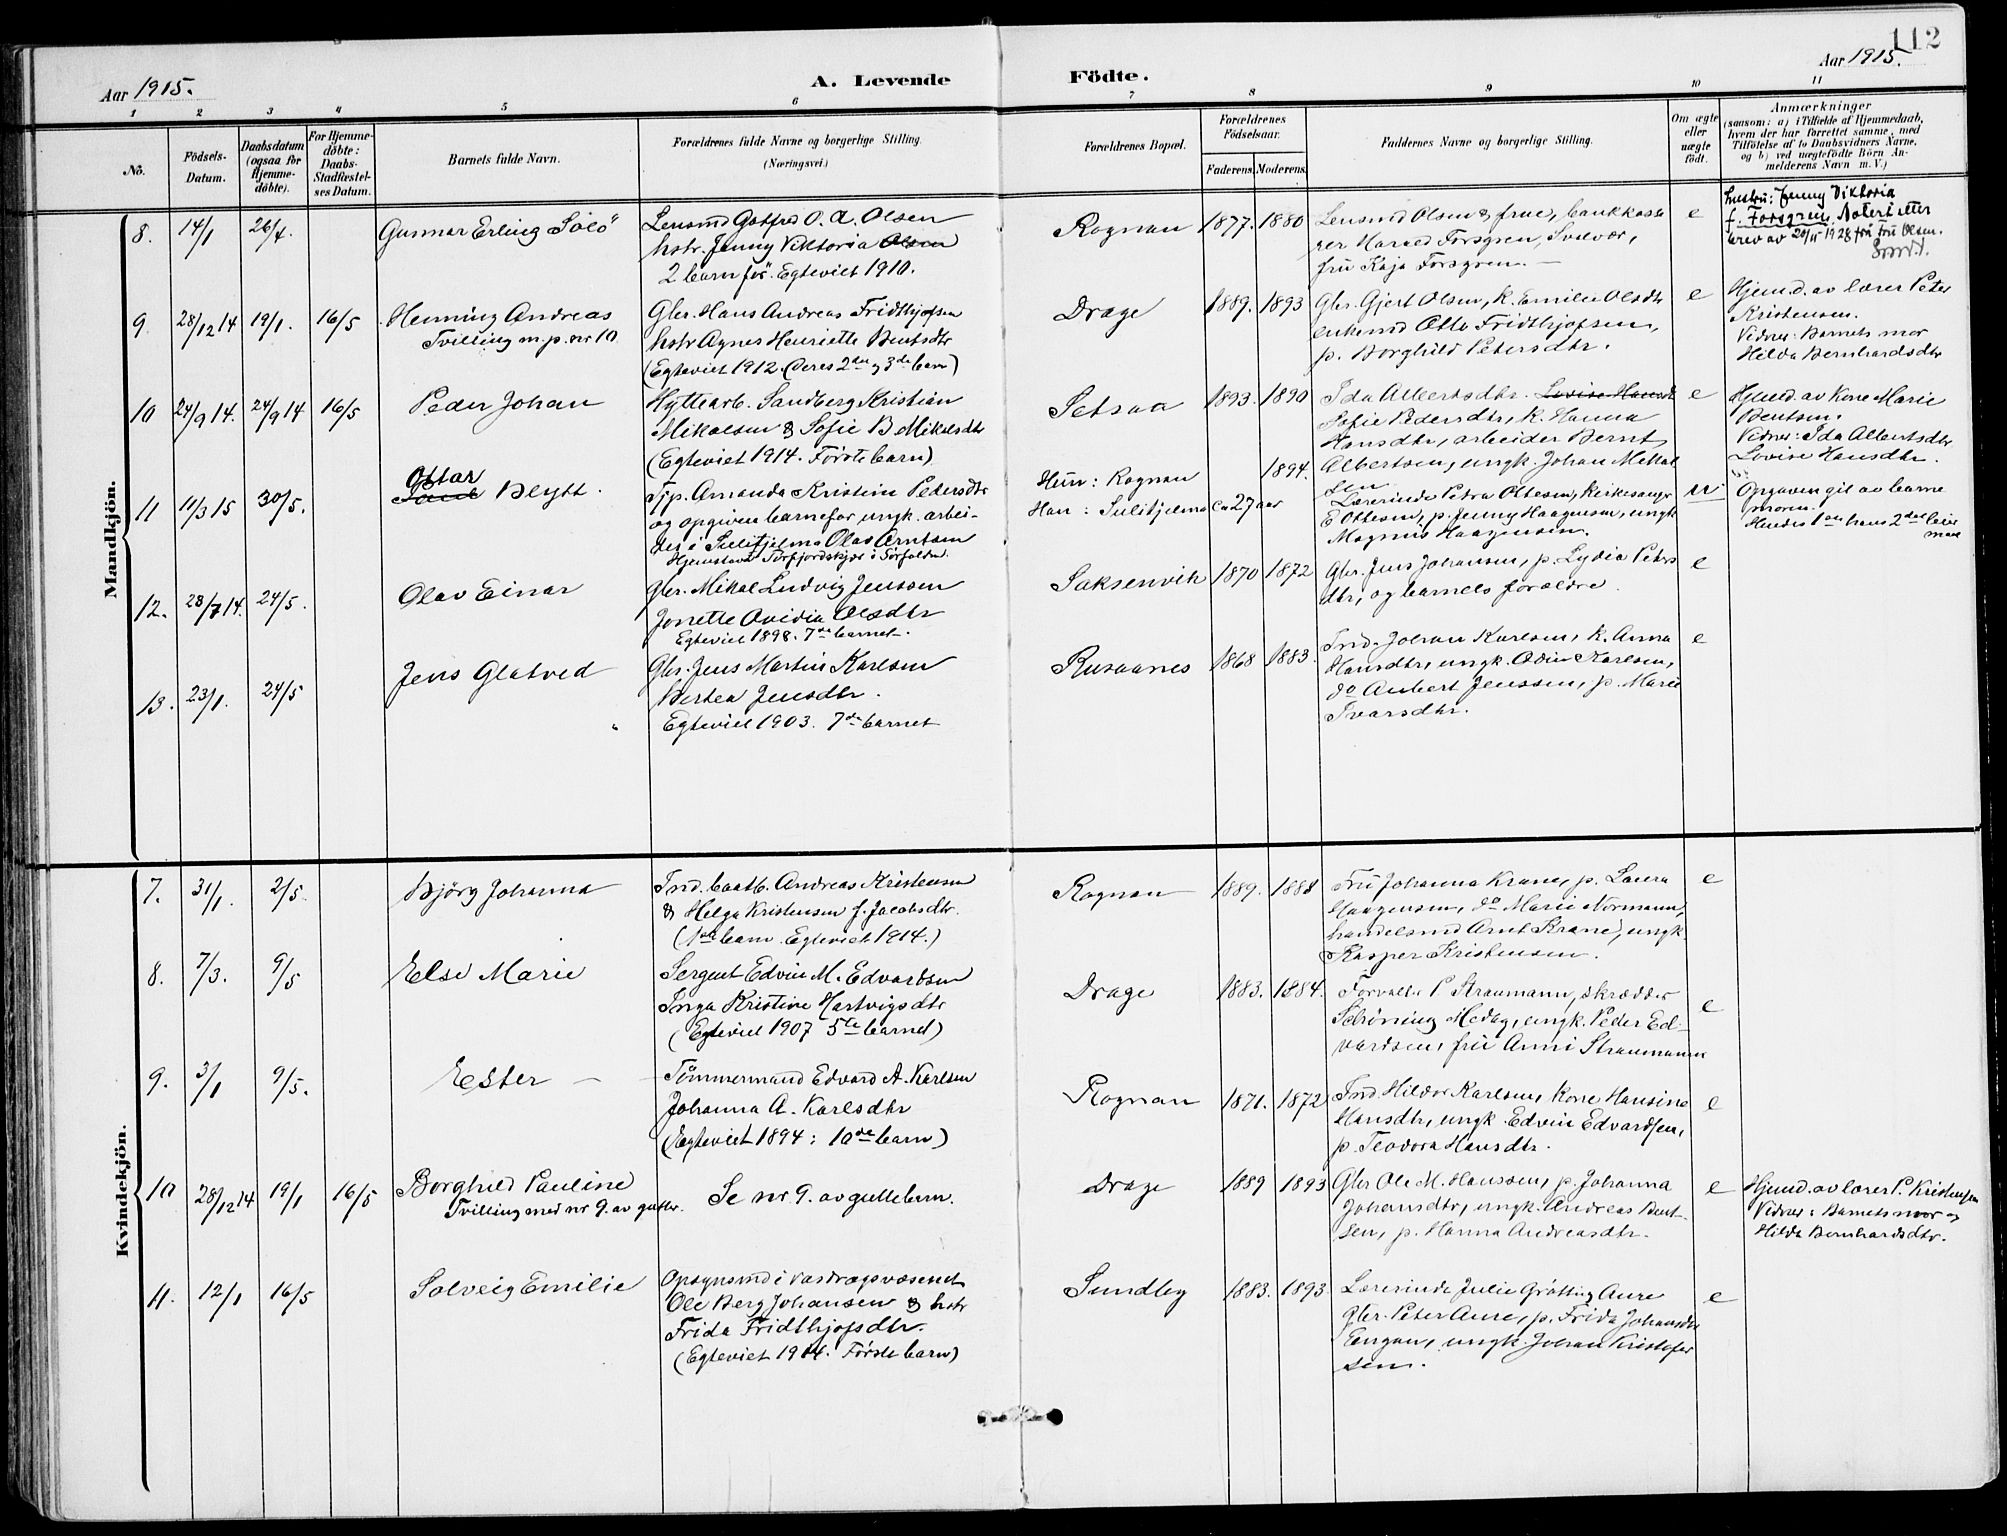 112
Aar 1915.
A. Levende
Födte.
Aar 1915.
1 2 3 4 5 6 7 8 9 10 11
No.
Födsels-
Datum.
Daabsdatum
(ogsaa for
Hjemme-
döbte).
For Hjemme-
döbte:
Daabs-
Stadfæstel-
ses Datum.
Barnets fulde Navn.
Forældrenes fulde Navne og borgerlige Stilling.
(Næringsvei.)
Forældrenes Bopæl.
Forældrenes
Födselsaar.
Faderens. Moderens.
Faddernes Navne og borgerlige Stilling.
Om ægte
eller
uægte
födt.
Anmærkninger
(saasom: a) i Tilfælde af Hjemmedaab,
hvem der har forrettet samme, med
Tilföielse af to Daabsvidners Navne,
og b) ved uægtefödte Börn An-
melderens Navn m. V.)
Mandkjön.
8. 14/1 26/4.
Gunnar Erling Solö
Lensmd Gotfred O. A. Olsen
hstr. Jenny Viktoria Olsen
2 barn før. Egteviet 1910.
Rognan
1877. 1880
Lensmd Olsen & frue, bankkasse
rer Harald Forsgren, Svolvær,
fru Kaja Forsgren.
e
hustru: Jenny Viktoria
f. Forsgren. Notert etter
brev av 20/11 1928 fra fru Olsen.
9. 28/12 14 19/1. 16/5
Henning Andreas
Tvilling m. p. nr 10
Gbr. Hans Andreas Fridthjofsen
hstr Agnes Henriette Bentsdtr
(Egteviet 1912. (deres 2den og 3de barn)
Drage
1889. 1893
Gbr. Gjert Olsen, k. Emilie Olsdtr
enkemd Otto Fridthjofsen,
p. Borghild Petersdtr.
e
Hjemd. av lærer Peter
Kristensen.
Vidner: Barnets mor
Hilda Bernhardsdtr
10 24/9 14. 24/9 14 16/5
Peder Johan
Hyttearb. Sandberg Kristian
Mikalsen & Sofie B Mikalsdtr
(Egteviet 1914. Første barn)
Setsaa
1893. 1890
Ida Albertsdtr. Lovise Hansdtr
Sofie Pedersdtr, k. Hanna
Hansdtr, arbeider Bernt
Albertsen, ungk. Johan Mikal
sen
e
Hjemd. av kone Marie
Bentsen.
Vidner: Ida Albertsdtr
Lovise Hansdtr.
11 11/3 15 30/5.
Ottar
Blytt.
Tjp. Amanda Kristine Pedersdtr
og opgiven barnefar ungk. arbei-
der i Sulitjelma Olav Arntsen
Hjemstavn Torfjordskjær i Sørfolden.
Hun: Rognan
Han: Sulitjelma
1894.
ca 27 aar
Lærerinde Petra Ottesen, kirkesanger
E Ottesen, p. Jenny Haagensen, ungk
Magnus Haagensen.
u
Opgaven git av barne
moren.
Hendes 1ste hans 2det leie
maal
12. 28/7 14. 24/5.
Olav Einar
Gbr. Mikal Ludvig Jenssen
Jonette Ovidia Olsdtr
Egteviet 1898. 7de barnet.
Saksenvik
1870 1872
Gbr. Jens Johansen, p. Lydia Peters
dtr, og barnets forældre.
e
13. 23/1. 24/5
Jens Glatved
Gbr. Jens Martin Karlsen
Bertea Jensdtr.
Egteviet 1903. 7de barnet
Rusaanes
1868 1883.
Ind. Johan Karlsen, k. Anna
Hansdtr, ungk. Odin Karlsen,
do Aubert Jenssen, p. Marie
Ivarsdtr.
e
Kvindekjön.
7. 31/1. 2/5.
Bjørg Johanna
Ind. baatb. Andreas Kristensen
& Helga Kristensen f. Jacobsdtr.
(1ste barn. Egteviet 1914.)
Rognan
1889. 1888
Fru Johanna Krane, p. Laura
Haagensen, do Marie Normann,
handelsmd Arnt Krane, ungk.
Kasper Kristensen.
e
8. 7/3. 9/5
Else Marie
Sergent Edvin M. Edvardsen
Inga Kristine Hartvigsdtr
(Egteviet 1907 5te barnet)
Drage
1883. 1884.
Forvalter P Straumann, skrædder
Schrøning Medby, ungk. Peder Ed-
vardsen, fru Anni Straumann
e
9. 3/1 9/5.
Ester
Tømmermand Edvard A. Karlsen
Johanna A. Karlsdtr
(Egteviet 1894: 10de barn)
Rognan
1871. 1872
Ind. Hildor Karlsen, kone Hansine
Hansdtr, ungk. Edvin Edvardsen,
p. Teodora Hansdtr.
e
10 28/12 14 19/1 16/5
Borghild Pauline
Tvilling med nr 9. av gutter.
Se nr 9. av guttebarn.
Drage
1889 1893
Gbr Ole M. Hanssen, p. Johanna
Johansdtr, ungk. Andreas Bent-
sen, p. Hanna Andreasdtr.
e
Hjemd. av lærer P. Kristensen
Vidner: Barnets mor og
Hilda Bernhardsdtr.
11. 12/1 16/5
Solveig Emilie
Opsynsmd i vasdragsvæsenet
Ole Berg Johansen & hstr
Frida Fridthjofsdtr.
(Egteviet 1914. Første barn)
Sundby
1883. 1893
Lærerinde Julie Grøtting Aure
Gbr. Peter Aure, p. Frida Johansdtr
Engan, ungk. Johan Kristofer
sen.
e